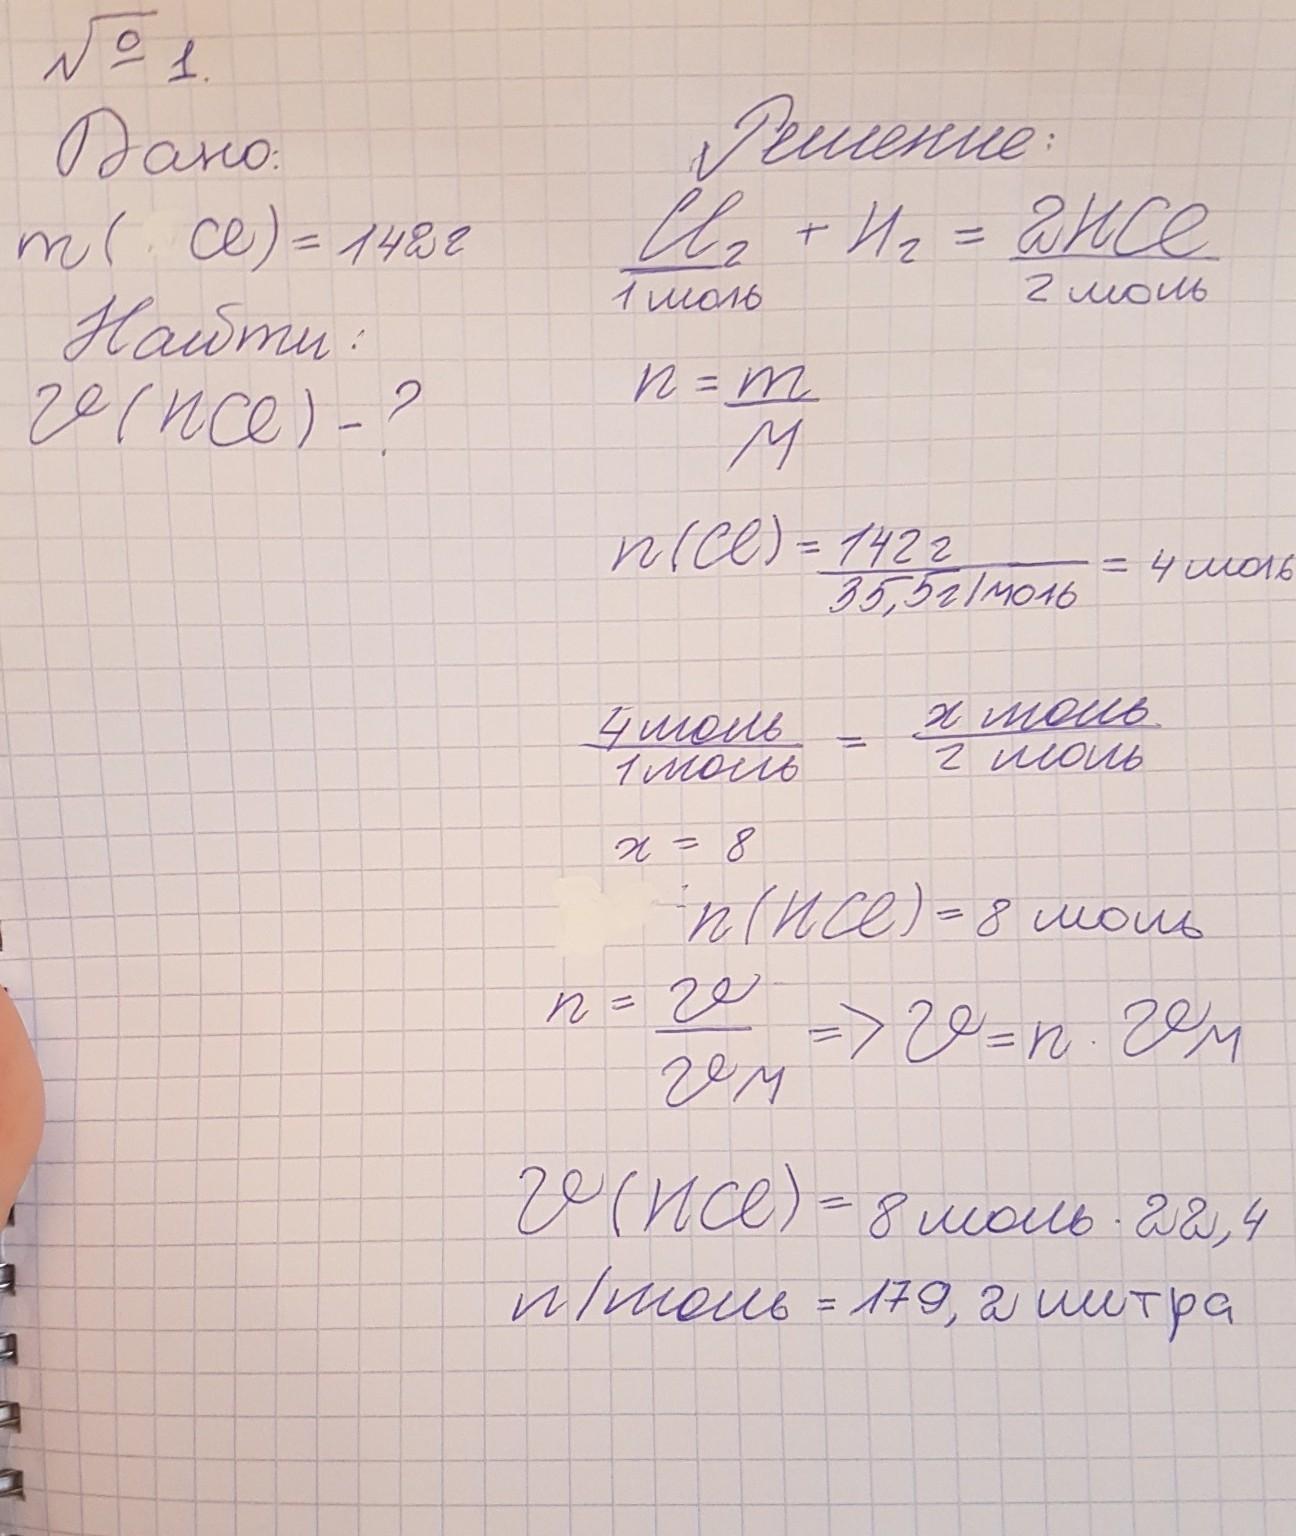 № 1.
Дано:
m( Cl) = 142 г
Найти:
V(HCl) - ?
Решение:
Cl₂ + H₂ = 2HCl
1 моль 2 моль
n = m/M
n(Cl) = 142 г / 35,5 г/моль = 4 моль
4 моль / 1 моль = x моль / 2 моль
x = 8
n(HCl) = 8 моль
n = V/Vм => V = n · Vм
V(HCl) = 8 моль · 22,4
л/моль = 179,2 литра